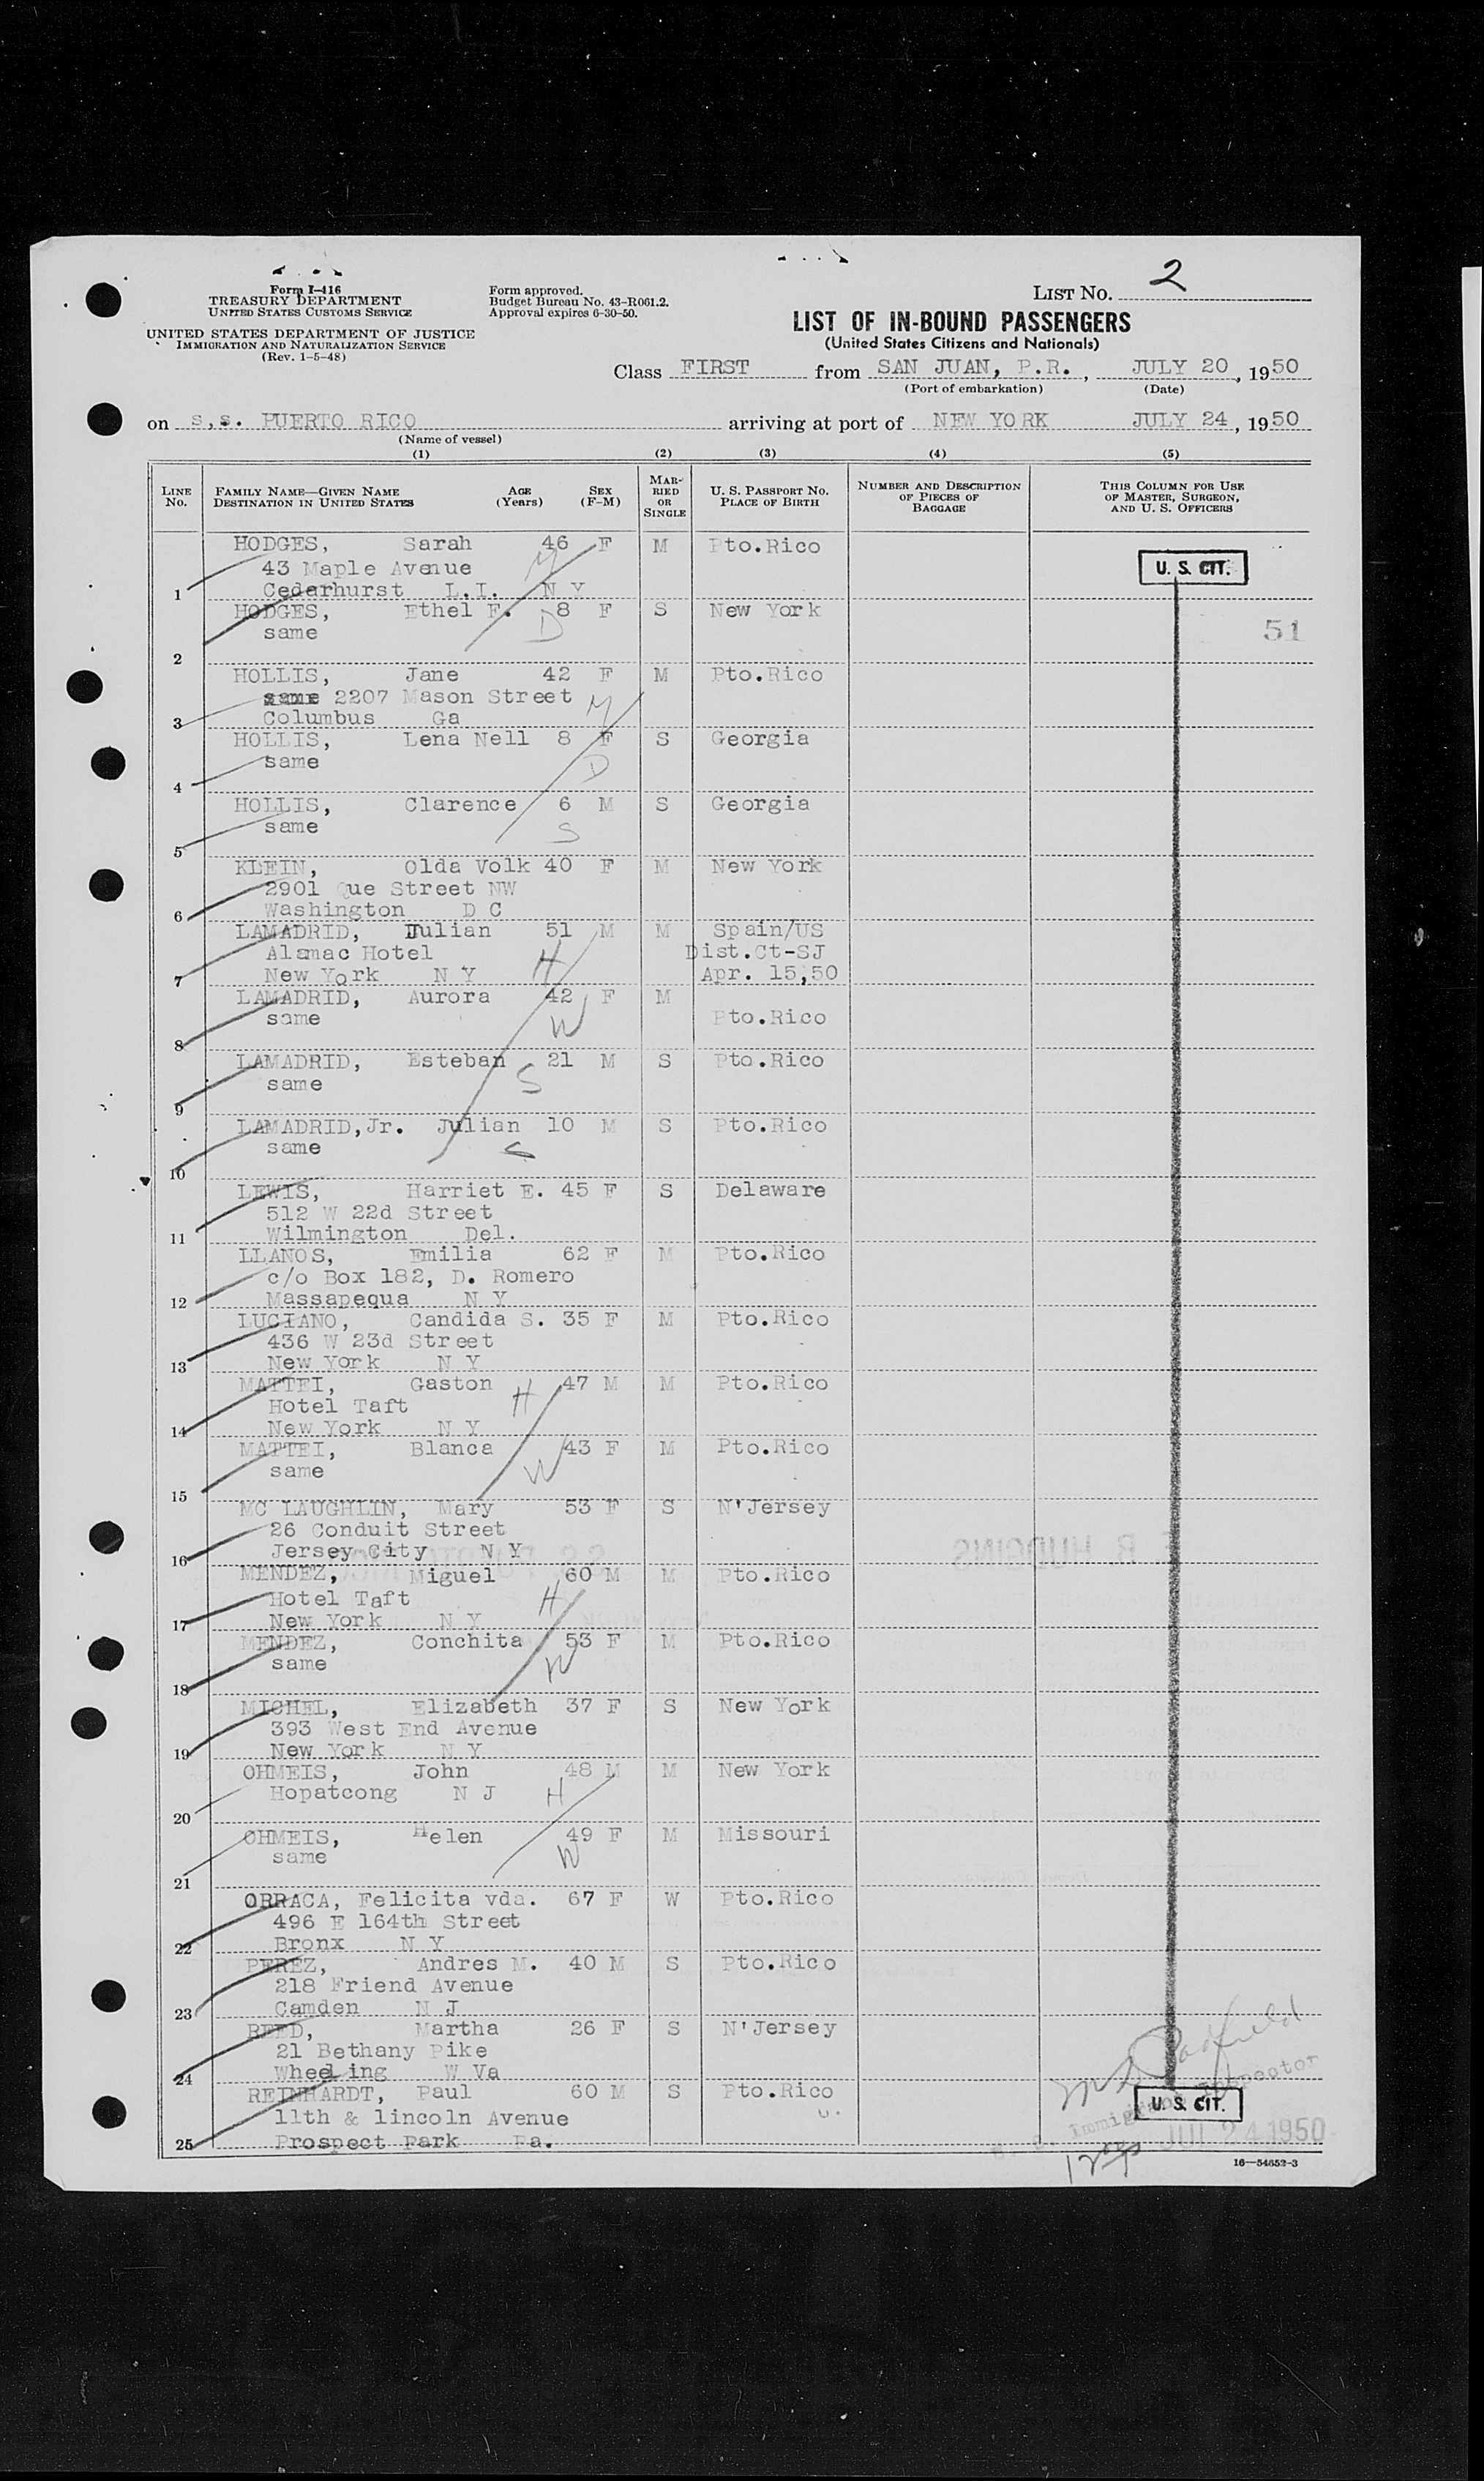 Form I-416
TREASURY DEPARTMENT
UNITED STATES CUSTOMS SERVICE
UNITED STATES DEPARTMENT OF JUSTICE
IMMIGRATION AND NATURALIZATION SERVICE
(Rev. 1-5-48)
Form approved.
Budget Bureau No. 43-R061.2.
Approval expires 6-30-50.
LIST No. 2
LIST OF IN-BOUND PASSENGERS
(United States Citizens and Nationals)
Class FIRST from SAN JUAN, P.R., JULY 20, 1950
(Port of embarkation) (Date)
on s,s. PUERTO RICO arriving at port of NEW YORK JULY 24, 1950
(Name of vessel)
(1) (2) (3) (4) (5)
LINE No. FAMILY NAME—GIVEN NAME DESTINATION IN UNITED STATES AGE (Years) SEX (F-M) MARRIED OR SINGLE U. S. PASSPORT No. PLACE OF BIRTH NUMBER AND DESCRIPTION OF PIECES OF BAGGAGE THIS COLUMN FOR USE OF MASTER, SURGEON, AND U. S. OFFICERS
HODGES, Sarah 46 F M Pto.Rico
43 Maple Avenue M U. S. CIT.
1 Cedarhurst L.I. N Y
HODGES, Ethel F. 8 F S New York
same D 51
2
HOLLIS, Jane 42 F M Pto.Rico
same 2207 Mason Street M
3 Columbus Ga
HOLLIS, Lena Nell 8 F S Georgia
same D
4
HOLLIS, Clarence 6 M S Georgia
same S
5
KLEIN, Olda Volk 40 F M New York
2901 Que Street NW
6 Washington D C
LAMADRID, Julian 51 M M Spain/US
Alamac Hotel H Dist.Ct-SJ
7 New York N Y Apr. 15,50
LAMADRID, Aurora 42 F M
same W Pto.Rico
8
LAMADRID, Esteban 21 M S Pto.Rico
same S
9
LAMADRID,Jr. Julian 10 M S Pto.Rico
same S
10
LEWIS, Harriet E. 45 F S Delaware
512 W 22d Street
11 Wilmington Del.
LLANOS, Emilia 62 F M Pto.Rico
c/o Box 182, D. Romero
12 Massapequa N Y
LUCIANO, Candida S. 35 F M Pto.Rico
436 W 23d Street
13 New York N Y
MATTEI, Gaston 47 M M Pto.Rico
Hotel Taft H
14 New York N Y
MATTEI, Blanca 43 F M Pto.Rico
same W
15
MC LAUGHLIN, Mary 53 F S N'Jersey
26 Conduit Street
16 Jersey City N Y
MENDEZ, Miguel 60 M M Pto.Rico
Hotel Taft H
17 New York N Y
MENDEZ, Conchita 53 F M Pto.Rico
same W
18
MICHEL, Elizabeth 37 F S New York
393 West End Avenue
19 New York N Y
OHMEIS, John 48 M M New York
Hopatcong N J H
20
OHMEIS, Helen 49 F M Missouri
same W
21
ORRACA, Felicita vda. 67 F W Pto.Rico
496 E 164th Street
22 Bronx N Y
PEREZ, Andres M. 40 M S Pto.Rico
218 Friend Avenue
23 Camden N J
REED, Martha 26 F S N'Jersey
21 Bethany Pike
24 Wheeling W Va
REINHARDT, Paul 60 M S Pto.Rico
11th & lincoln Avenue U. S. CIT.
25 Prospect Park Pa.
Immigrant Inspector
JUL 24 1950
16—54652-3